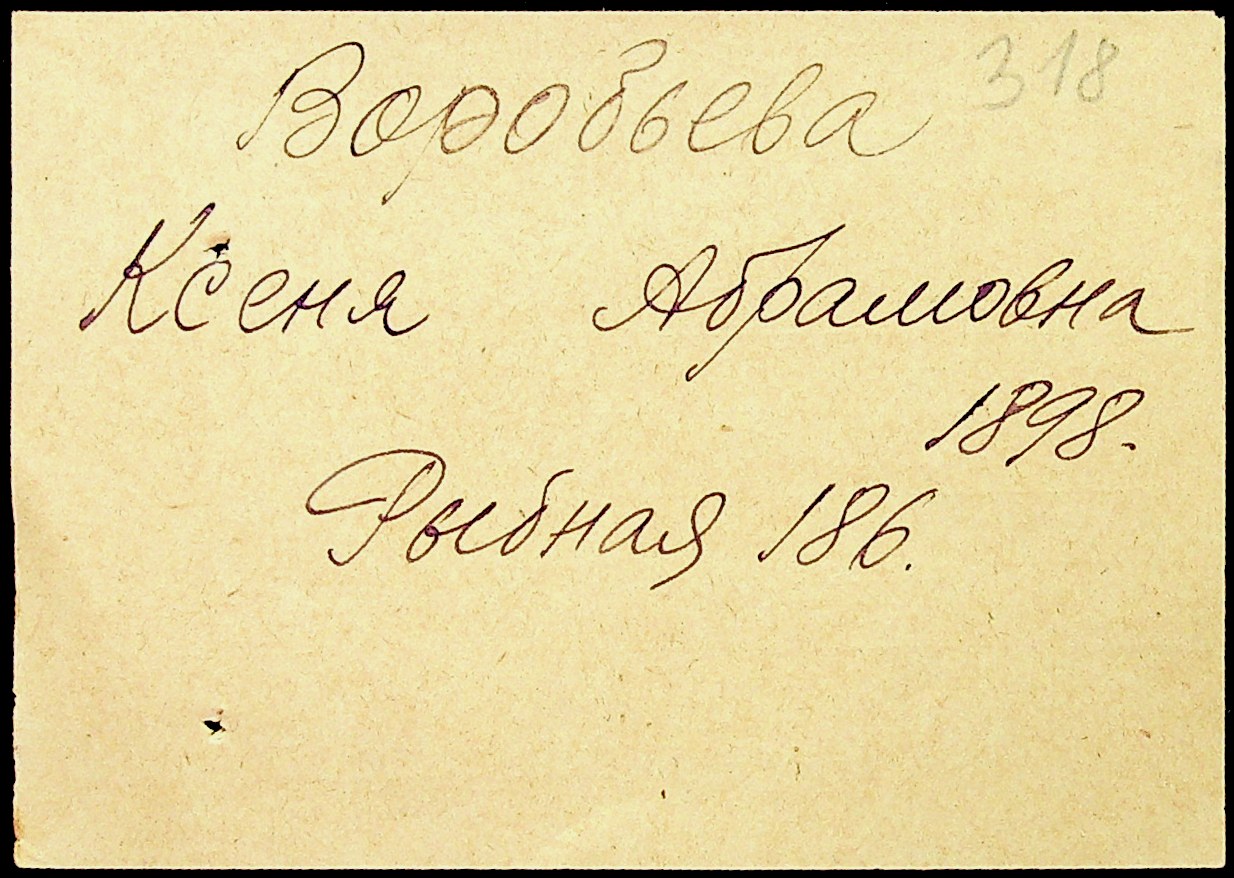 Воробьева 318
Ксеня Абрамовна
1898.
Рыбная 186.